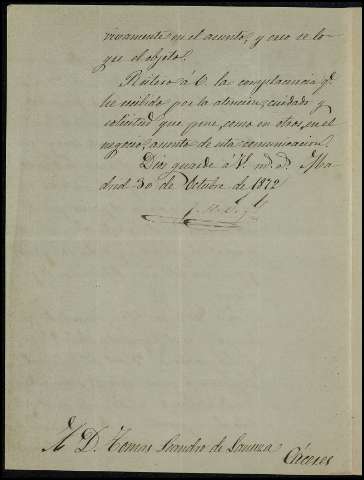 vivamente en el asunto, y creo se lo-
gre el objeto.
Reitero á V. la complacencia qe
he recibido por la atencion, cuidado y
solicitud que pone, como en otros, en el
negocio, asunto de esta comunicacion.
Dios guarde á V. m. a. Ma-
drid 30 de Octubre de 1872
D. Tomas Leandro de
Cáceres